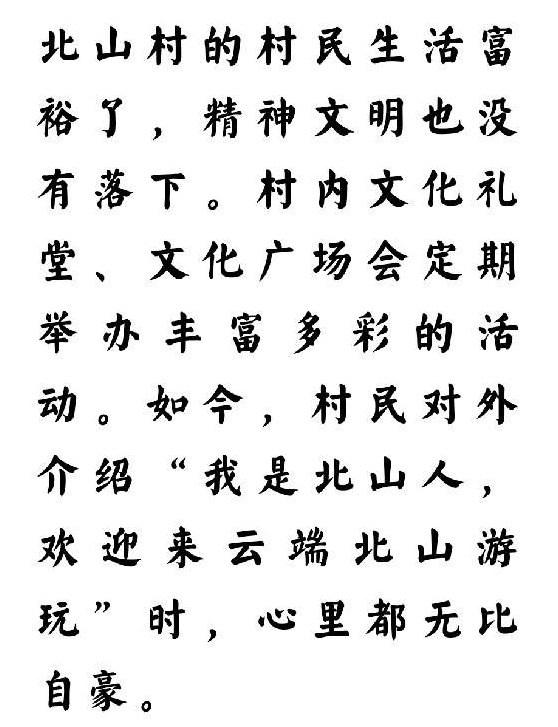 北山村的村民生活富
裕了，精神文明也没
有落下。村内文化礼
堂、文化广场会定期
举办丰富多彩的活
动。如今，村民对外
介绍“我是北山人，
欢迎来云端北山游
玩”时，心里都无比
自豪。